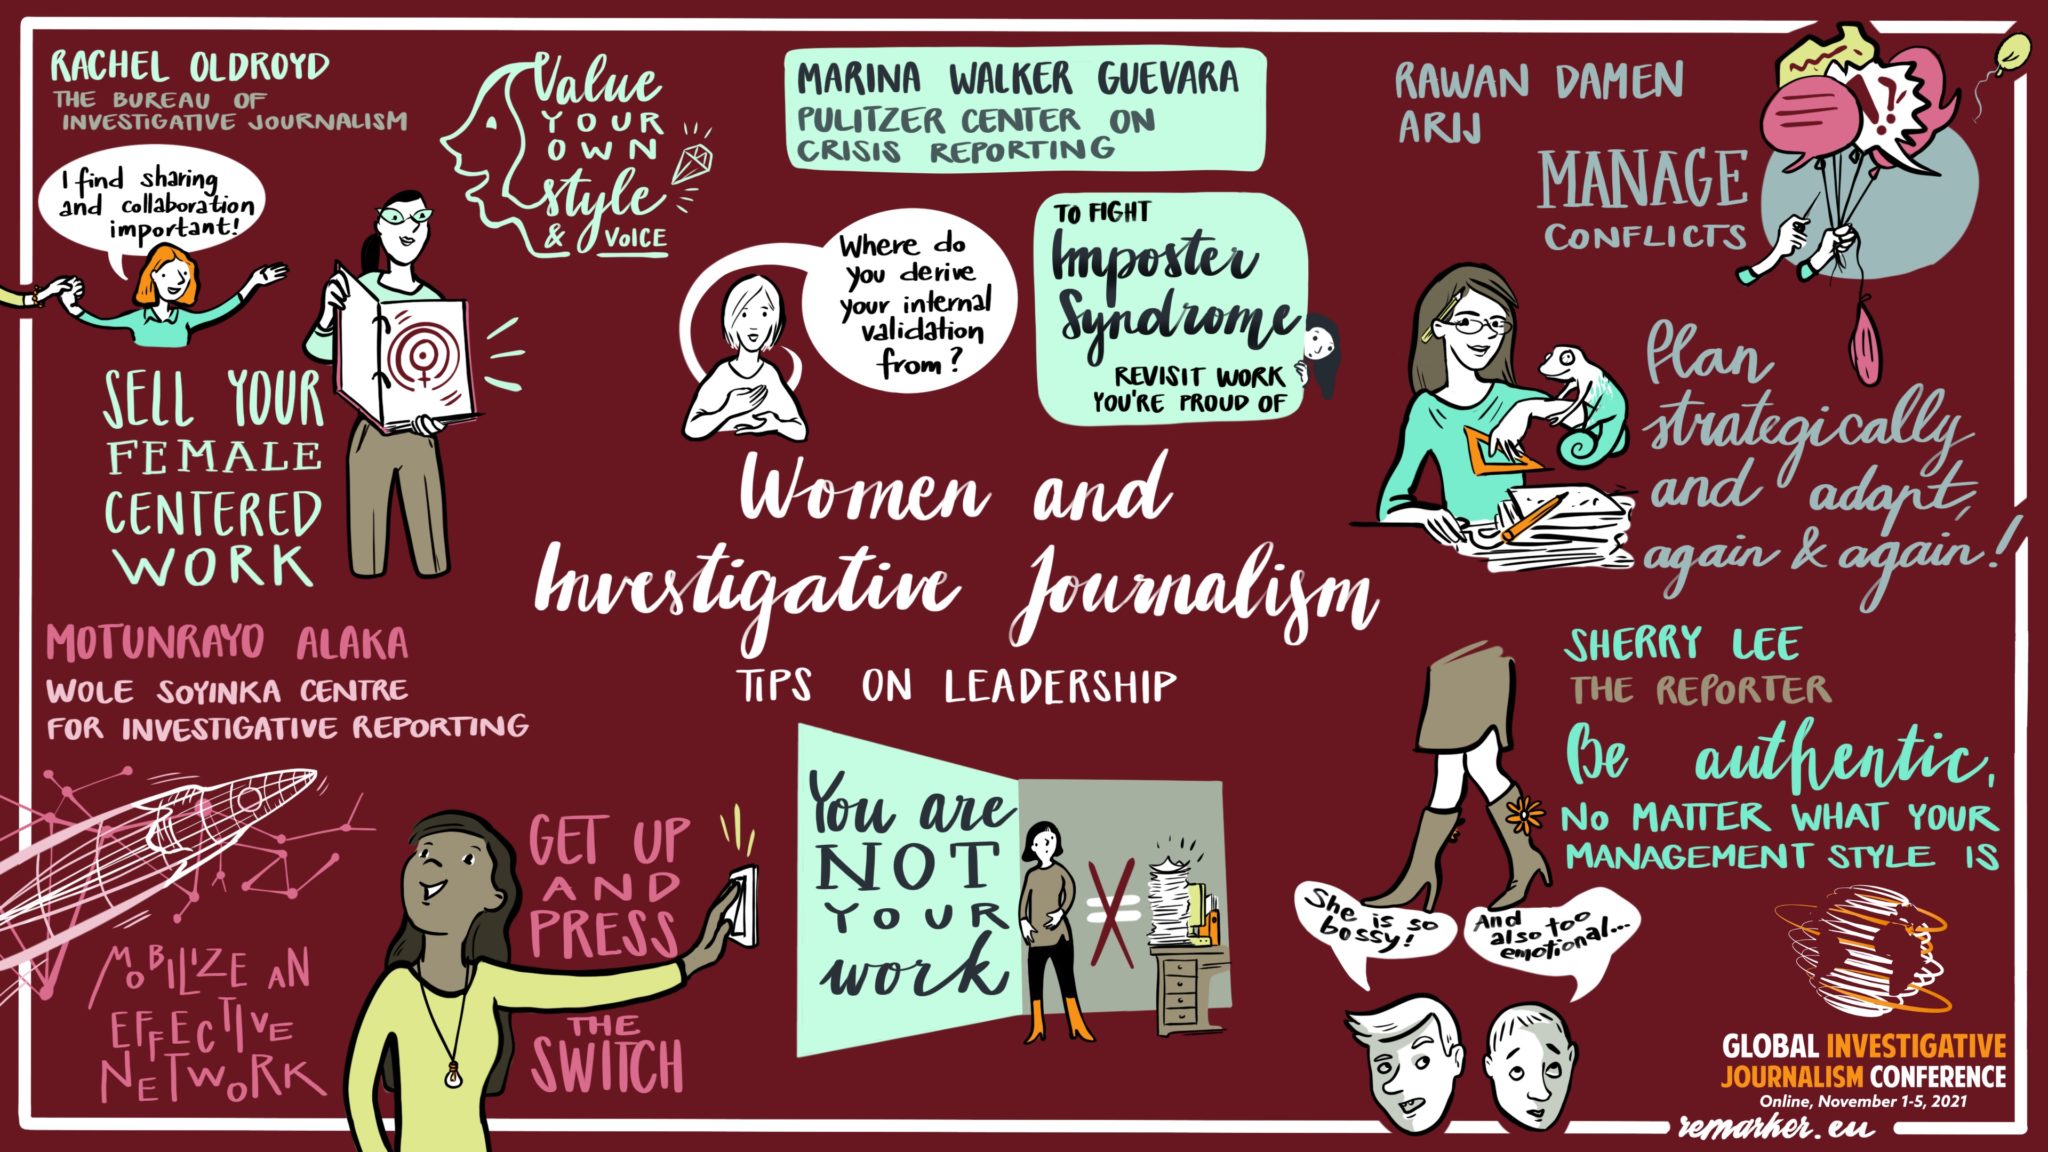 RACHEL OLDROYD
THE BUREAU OF
INVESTIGATIVE JOURNALISM
I find sharing
and collaboration
important!
Value
YOUR
OWN
style
& VOICE
SELL YOUR
FEMALE
CENTERED
WORK
MARINA WALKER GUEVARA
PULITZER CENTER ON
CRISIS REPORTING
Where do
you derive
your internal
validation
from?
TO FIGHT
Imposter
Syndrome
REVISIT WORK
YOU'RE PROUD OF
RAWAN DAMEN
ARIJ
MANAGE
CONFLICTS
!?
Plan
strategically
and adapt,
again & again!
Women and
Investigative Journalism
TIPS ON LEADERSHIP
MOTUNRAYO ALAKA
WOLE SOYINKA CENTRE
FOR INVESTIGATIVE REPORTING
MOBILIZE AN
EFFECTIVE
NETWORK
GET UP
AND
PRESS
THE
SWITCH
You are
NOT
YOUR
work
SHERRY LEE
THE REPORTER
Be authentic,
NO MATTER WHAT YOUR
MANAGEMENT STYLE IS
She is so
bossy!
And
also too
emotional...
GLOBAL INVESTIGATIVE
JOURNALISM CONFERENCE
Online, November 1-5, 2021
remarker.eu